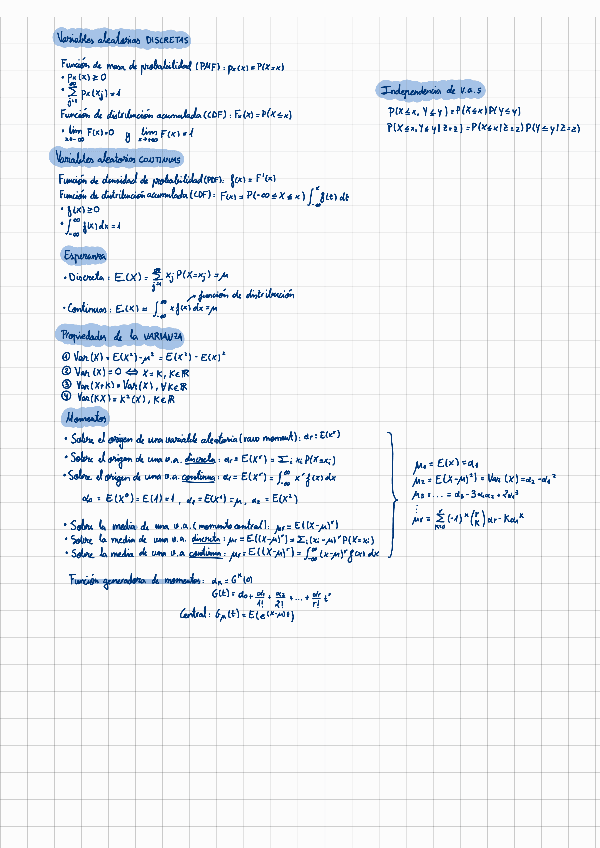 Variables aleatorias DISCRETAS
Función de masa de probabilidad (PMF): px(x) = P(X=x)
• px(x) ≥ 0
• ∑_{j=1}^{∞} px(xj) = 1
Función de distribución acumulada (CDF): Fx(x) = P(X≤x)
• lim_{x→-∞} F(x)=0 y lim_{x→+∞} F(x) = 1
Independencia de v.a.s
P(X≤x, Y≤y) = P(X≤x) P(Y≤y)
P(X≤x, Y≤y | Z=z) = P(X≤x | Z=z) P(Y≤y | Z=z)
Variables aleatorias CONTINUAS
Función de densidad de probabilidad (PDF): f(x) = F'(x)
Función de distribución acumulada (CDF): F(x) = P(-∞ ≤ X ≤ x) ∫_{-∞}^{x} f(t) dt
• f(x) ≥ 0
• ∫_{-∞}^{∞} f(x) dx = 1
Esperanza
• Discreta: E(X) = ∑_{j=1}^{∞} xj P(X=xj) = μ
función de distribución
• Continua: E(X) = ∫_{-∞}^{∞} x f(x) dx = μ
Propiedades de la VARIANZA
① Var(X) = E(X²) - μ² = E(X²) - E(X)²
② Var(X) = 0 ⇔ X = K, K∈ℝ
③ Var(X+K) = Var(X), ∀K∈ℝ
④ Var(KX) = K²(X), K∈ℝ
Momentos
• Sobre el origen de una variable aleatoria (raw moment): αr = E(X^r)
• Sobre el origen de una v.a. discreta: αr = E(X^r) = ∑i xi P(X=xi)
• Sobre el origen de una v.a. continua: αr = E(X^r) = ∫_{-∞}^{∞} x^r f(x) dx
α0 = E(X⁰) = E(1) = 1 , α1 = E(X¹) = μ, α2 = E(X²)
• Sobre la media de una v.a. (momento central): μr = E((X-μ)^r)
• Sobre la media de una v.a. discreta: μr = E((X-μ)^r) = ∑i (xi-μ)^r P(X=xi)
• Sobre la media de una v.a continua: μr = E((X-μ)^r) = ∫_{-∞}^{∞} (x-μ)^r f(x) dx
μ1 = E(X) = α1
μ2 = E(X-μ)²) = Var(X) = α2 - α1²
μ3 = ... = α3 - 3α1α2 + 2α1³
⋮
μr = ∑_{K=0}^{r} (-1)^K (r K) αr-K α1^K
Función generadora de momentos: αK = G^K(0)
G(t) = α0 + α1/1! + α2/2! + ... + αr/r! t^r
Central: Gμ(t) = E(e^{(X-μ)t})